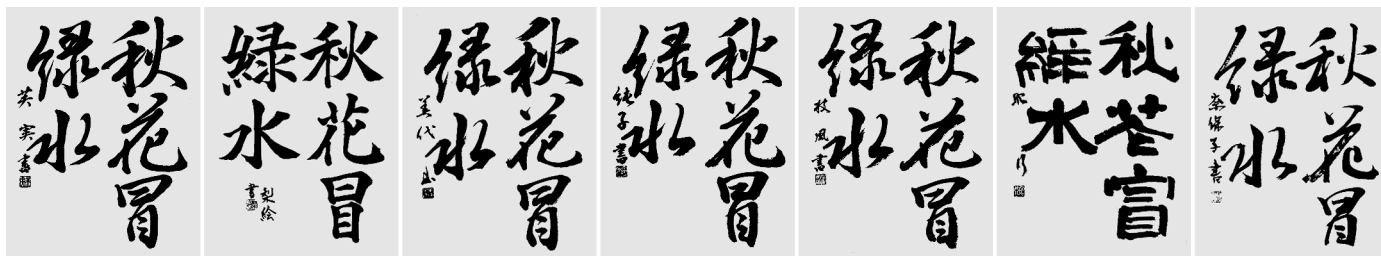 秋花冒
緑水
英実書
秋花冒
緑水
梨絵
書
秋花冒
緑水
美代
秋花冒
緑水
純子書
秋花冒
緑水
枝風書
秋花冒
緑水
秋花冒
緑水
奈保子書